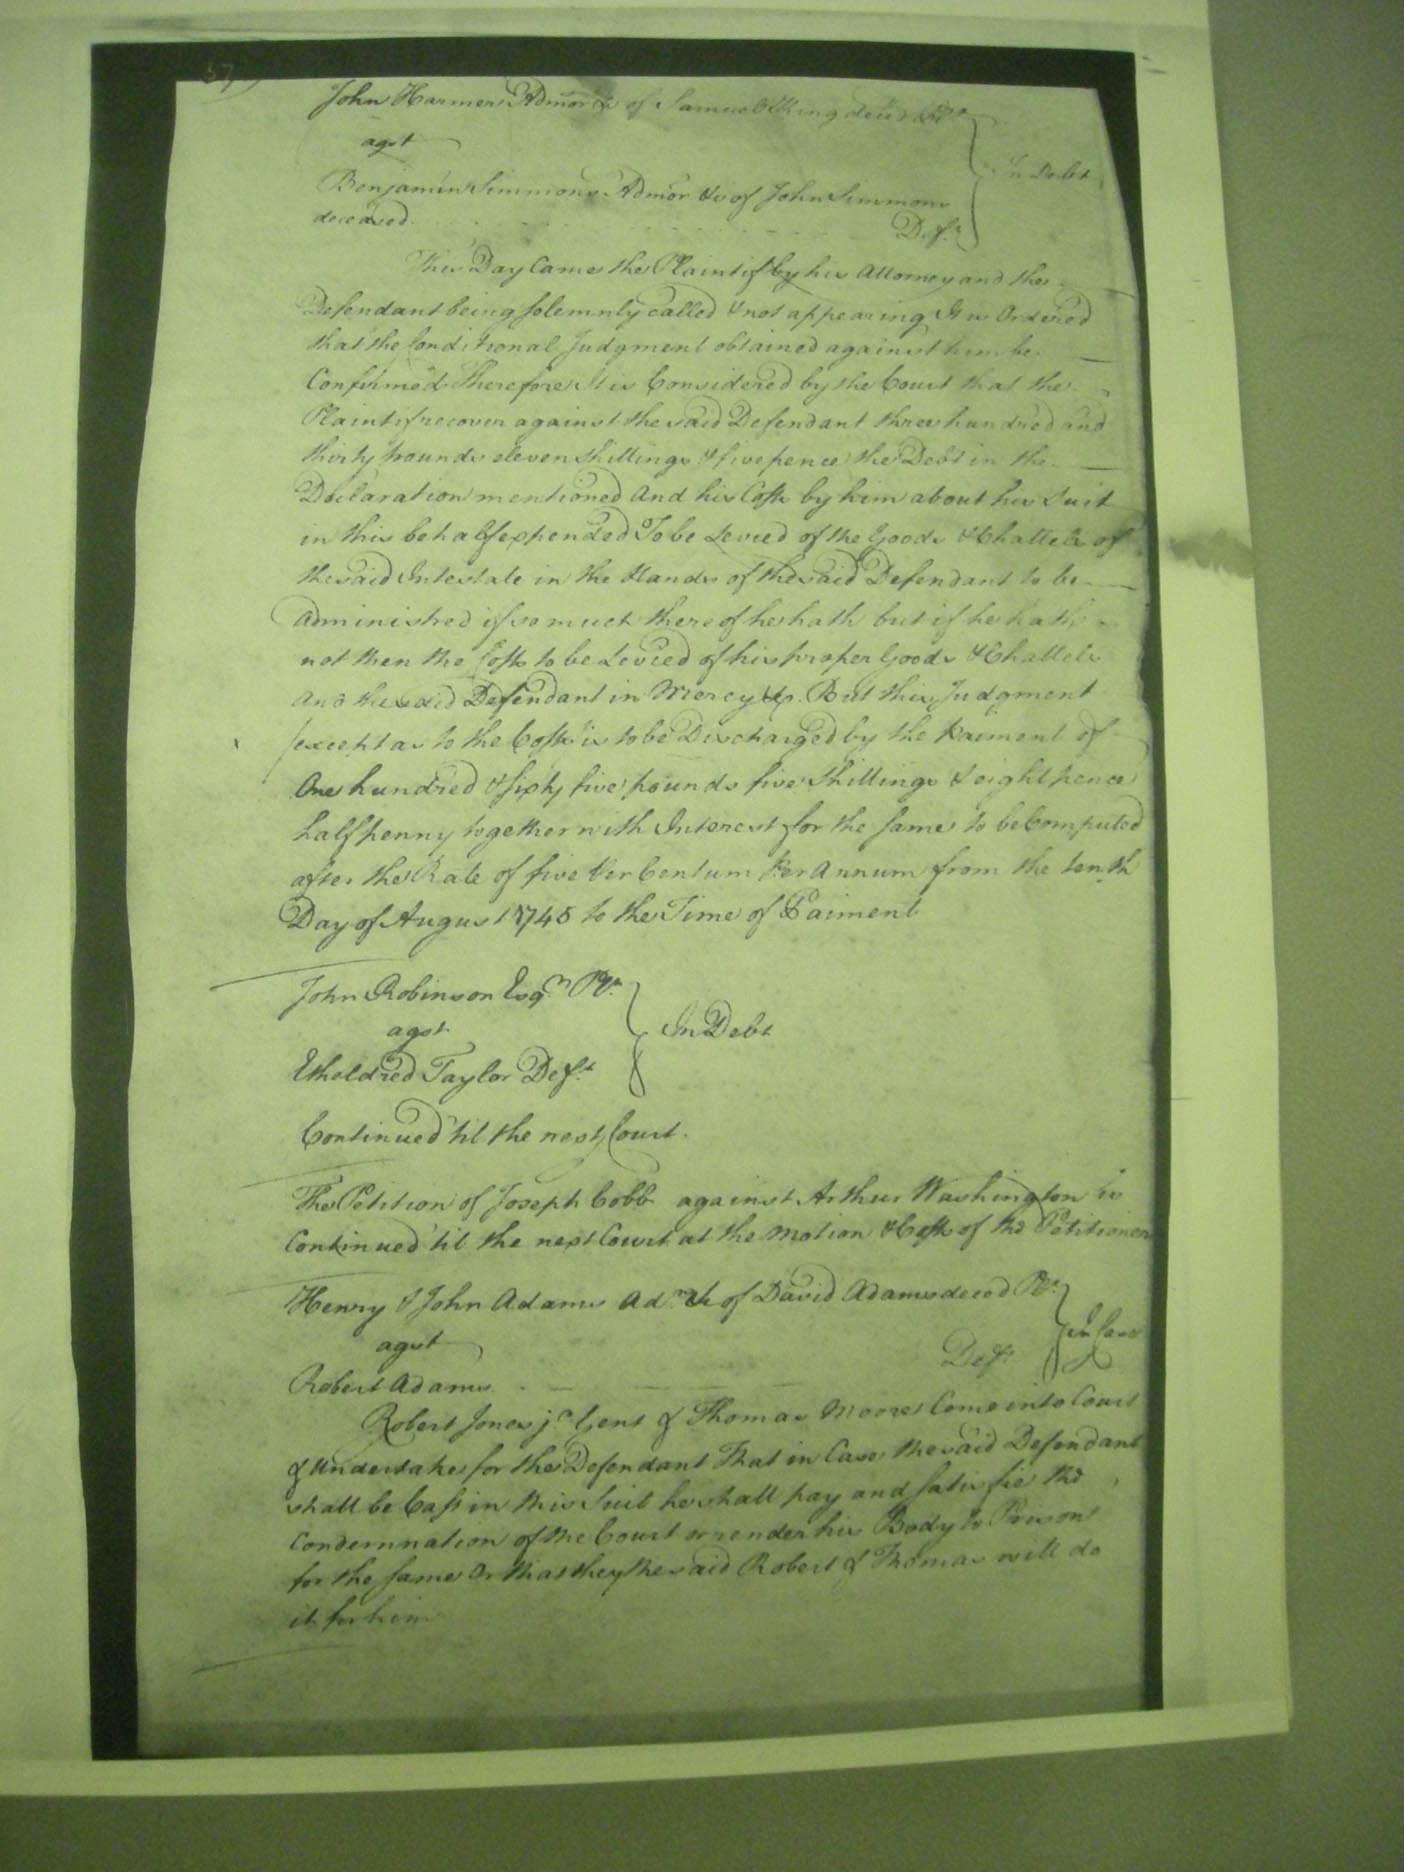 57
John Harmer Admor &c of Samuel Elking deced Plt
agst
In Debt
Benjamin Simmons Admor &c of John Simmons
deceased Deft
This Day Came the Plaintif by his Attorney and the
Defendant being solemnly called & not appearing It is Ordered
that the Conditional Judgment obtained against him be
Confirmed Therefore It is Considered by the Court that the
Plaintif recover against the said Defendant three hundred and
thirty pounds eleven shillings & five pence the Debt in the
Declaration mentioned And his Costs by him about his Suit
in this behalf expended To be Levied of the Goods & Chattels of
the said Intestate in the Hands of the said Defendant to be
administred if so much thereof he hath but if he hath
not then the Costs to be Levied of his proper Goods & Chattels
And the said Defendant in Mercy &c. But this Judgment
(except as to the Costs is to be Discharged by the Paiment of
One hundred & sixty five pounds five shillings & eight pence
half penny together with Interest for the same to be Computed
after the Rate of five Per Centum Per Annum from the tenth
Day of August 1745 to the Time of Paiment
John Robinson Esqr. Plt.
agst
In Debt
Etheldred Taylor Deft.
Continued 'til the next Court.
The Petition of Joseph Cobb against Arthur Washington is
Continued 'til the next Court at the motion & Costs of the Petitioner
Henry & John Adams Adrs. &c of David Adams deced Plt.
In Case
agst
Deft.
Robert Adams
Robert Jones jr. Gent & Thomas Moore Come into Court
& undertake for the Defendant That in Case the said Defendant
shall be Cast in this Suit he shall pay and satisfie the
Condemnation of the Court or render his Body to Prison
for the same Or that they the said Robert & Thomas will do
it for him